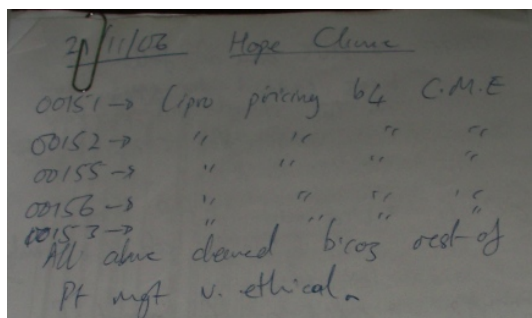 2 /11/06 Hope Clinic
00151→ Cipro pricing b4 C.M.E
00152→ " " " "
00155→ " " " "
00156→ " " " "
00153→ " " " "
All above cleared bicoz rest of
Pt mgt v. ethical.